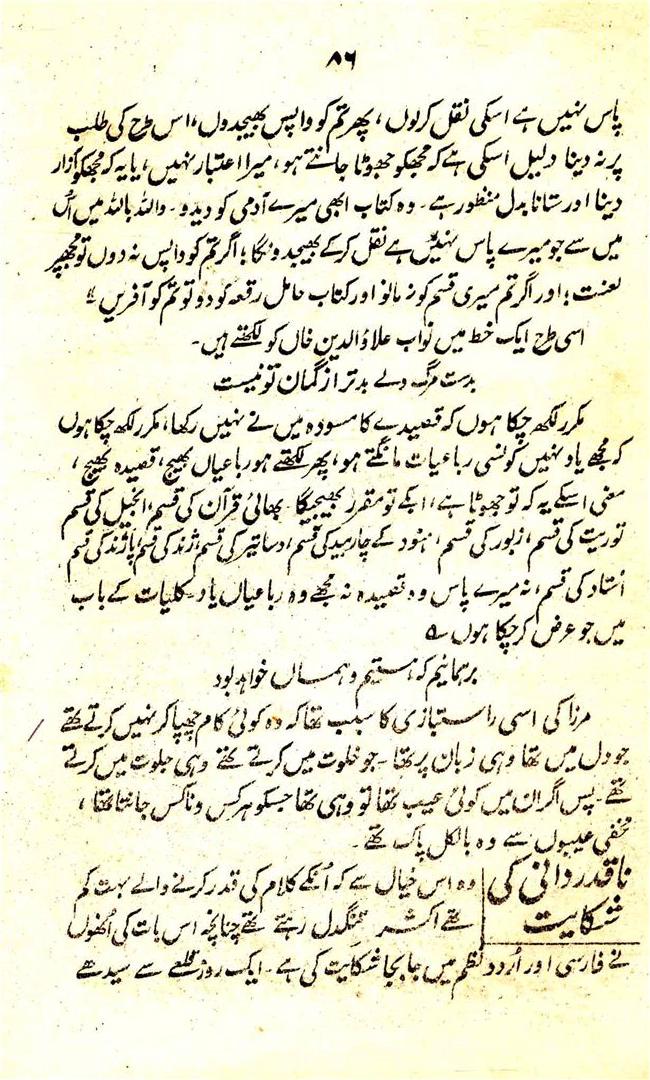 ۸۶
پاس نہیں ہے اسکی نقل کرلوں، پھر تم کو واپس بھیجدوں، اس طرح کی طلب
پر نہ دینا دلیل اسکی ہے کہ مجھکو جھوٹا جانتے ہو، میرا اعتبار نہیں، یا یہ کہ مجھکو آزار
دینا اور ستانا بدل منظور ہے۔ وہ کتاب ابھی میرے آدمی کو دیدو۔ واللہ باللہ میں اُس
میں سے جو میرے پاس نہیں ہے نقل کر کے بھیجدونگا؛ اگر تم کو واپس نہ دوں تو مجھپر
لعنت؛ اور اگر تم میری قسم کو نہ مانو اور کتاب حامل رقعہ کو نہ دو تو تم کو آفریں"
اسی طرح ایک خط میں نواب علاؤالدین خاں کو لکھتے ہیں۔
بدست مرگ ولے بدتر از گمان تو نیست
مکرر لکھ چکا ہوں کہ قصیدے کا مسودہ میں نے نہیں رکھا، مکرر لکھ چکا ہوں
کہ مجھے یاد نہیں کونسی رباعیات مانگتے ہو، پھر لکھتے ہو رباعیاں بھیج، قصیدہ بھیج،
معنی اسکے یہ کہ تو جھوٹا ہے، ابکے تو مقرر بھیجیگا۔ بھائی قرآن کی قسم، انجیل کی قسم
توریت کی قسم، زبور کی قسم، ہنود کے چار بید کی قسم، دساتیر کی قسم، ژند کی قسم پاژند کی قسم
اُستاد کی قسم، نہ میرے پاس وہ قصیدہ نہ مجھے وہ رباعیاں یاد۔ کلیات کے باب
میں جو عرض کر چکا ہوں ؎
برہمانیم کہ ہستیم و ہماں خواہد بود
مرزا کی اسی راستبازی کا سبب تھا کہ وہ کوئی کام چھپا کر نہیں کرتے تھے
جو دل میں تھا وہی زبان پر تھا۔ جو خلوت میں کرتے تھے وہی جلوت میں کرتے
تھے۔ پس اگر ان میں کوئی عیب تھا تو وہی تھا جسکو ہر کس و ناکس جانتا تھا،
مخفی عیبوں سے وہ بالکل پاک تھے۔
ناقدردانی کی شکایت
وہ اس خیال سے کہ اُنکے کلام کی قدر کرنے والے بہت کم
تھے اکثر تنگدل رہتے تھے چنانچہ اس بات کی اُنھوں
نے فارسی اور اُردو نظم میں جابجا شکایت کی ہے۔ ایک روز قلعے سے سیدھے